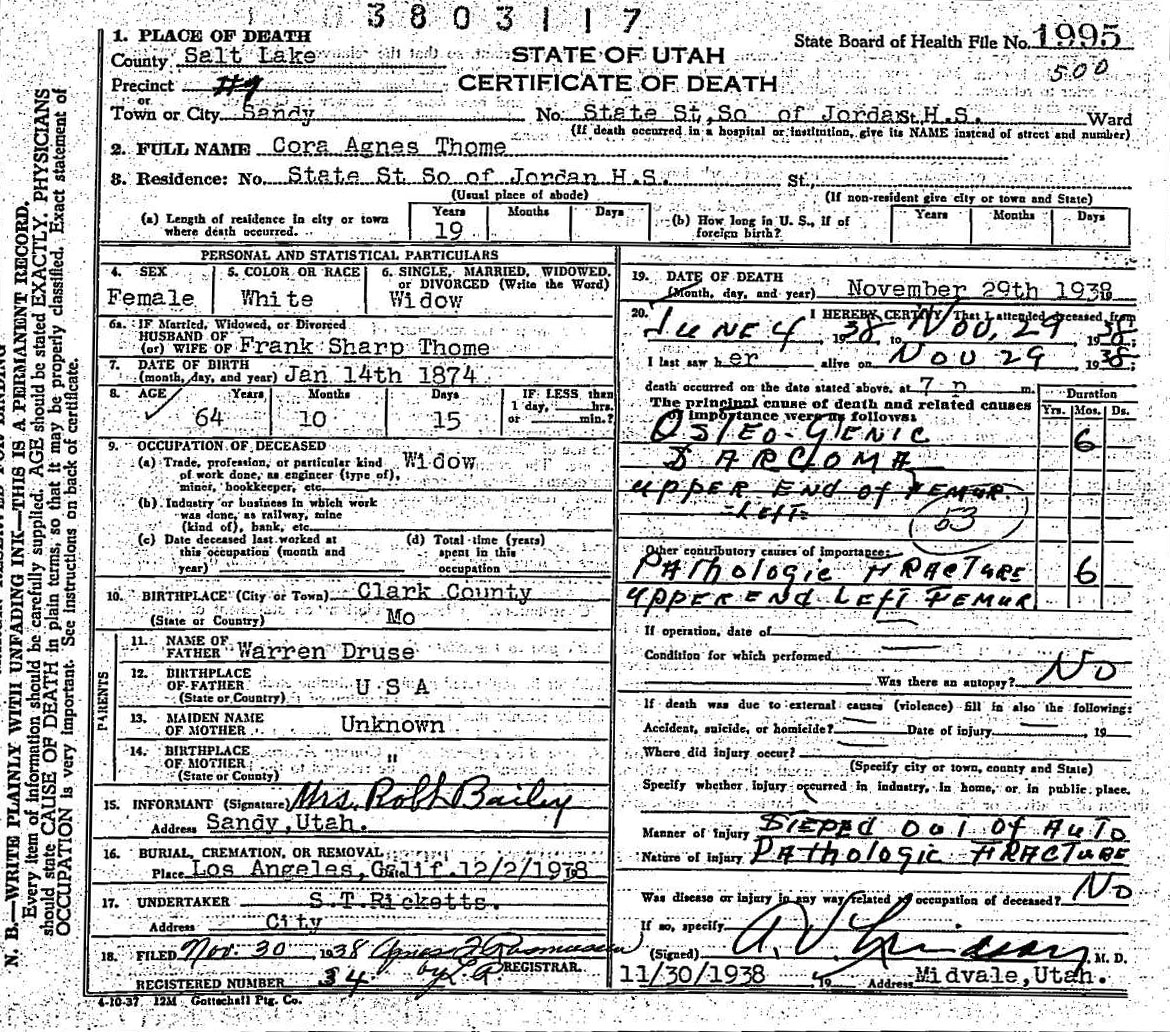 3803117
1. PLACE OF DEATH
County Salt Lake
Precinct #9
or
Town or City Sandy
STATE OF UTAH
CERTIFICATE OF DEATH
State Board of Health File No. 1995
500
No. State St, So of Jordan H.S. St. Ward
(If death occurred in a hospital or institution, give its NAME instead of street and number)
2. FULL NAME Cora Agnes Thome
3. Residence: No. State St So of Jordan H.S. St.,
(Usual place of abode) (If non-resident give city or town and State)
(a) Length of residence in city or town where death occurred. Years 19 Months Days
(b) How long in U. S., if of foreign birth? Years Months Days
PERSONAL AND STATISTICAL PARTICULARS
4. SEX Female
5. COLOR OR RACE White
6. SINGLE, MARRIED, WIDOWED, or DIVORCED (Write the Word) Widow
6a. IF Married, Widowed, or Divorced
HUSBAND OF
(or) WIFE OF Frank Sharp Thome
7. DATE OF BIRTH
(month, day, and year) Jan 14th 1874
8. AGE Years 64 Months 10 Days 15 IF LESS than 1 day, hrs. or min.?
9. OCCUPATION OF DECEASED
(a) Trade, profession, or particular kind Widow
of work done, as engineer (type of),
miner, bookkeeper, etc.
(b) Industry or business in which work
was done, as railway, mine
(kind of), bank, etc.
(c) Date deceased last worked at
this occupation (month and
year)
(d) Total time (years)
spent in this
occupation
10. BIRTHPLACE (City or Town) Clark County
(State or Country) Mo
PARENTS
11. NAME OF
FATHER Warren Druse
12. BIRTHPLACE
OF FATHER U S A
(State or Country)
13. MAIDEN NAME
OF MOTHER Unknown
14. BIRTHPLACE
OF MOTHER "
(State or County)
15. INFORMANT (Signature) Mrs. Robt. Bailey
Address Sandy, Utah.
16. BURIAL, CREMATION, OR REMOVAL
Place Los Angeles, Calif. 12/2/1938
17. UNDERTAKER S.T.Ricketts.
Address City
18. FILED Nov. 30 1938 Agnes Rasmussen
REGISTRAR.
REGISTERED NUMBER 34
4-10-37 12M Gottschall Ptg. Co.
19. DATE OF DEATH
(Month, day, and year) November 29th 1938
20. I HEREBY CERTIFY That I attended deceased from
JUNE 4 1938, to NOV. 29 1938;
I last saw her alive on NOV 29 1938;
death occurred on the date stated above, at 7 p m.
The principal cause of death and related causes
of importance were as follows:
Duration
Yrs. Mos. Ds.
OSTEO-GENIC 6
SARCOMA
UPPER END OF FEMUR
LEFT
53
Other contributory causes of importance:
PATHOLOGIC FRACTURE 6
UPPER END LEFT FEMUR
If operation, date of
Condition for which performed
Was there an autopsy? NO
If death was due to external causes (violence) fill in also the following:
Accident, suicide, or homicide? Date of injury 19
Where did injury occur?
(Specify city or town, county and State)
Specify whether injury occurred in industry, in home, or in public place.
Manner of Injury STEPED OUT OF AUTO
Nature of injury PATHOLOGIC FRACTURE
Was disease or injury in any way related to occupation of deceased? NO
If so, specify
(Signed) M. D.
11/30/1938 19 Address Midvale, Utah.
N. B.—WRITE PLAINLY WITH UNFADING INK—THIS IS A PERMANENT RECORD.
Every item of information should be carefully supplied. AGE should be stated EXACTLY. PHYSICIANS
should state CAUSE OF DEATH in plain terms, so that it may be properly classified. Exact statement of
OCCUPATION is very important. See instructions on back of certificate.